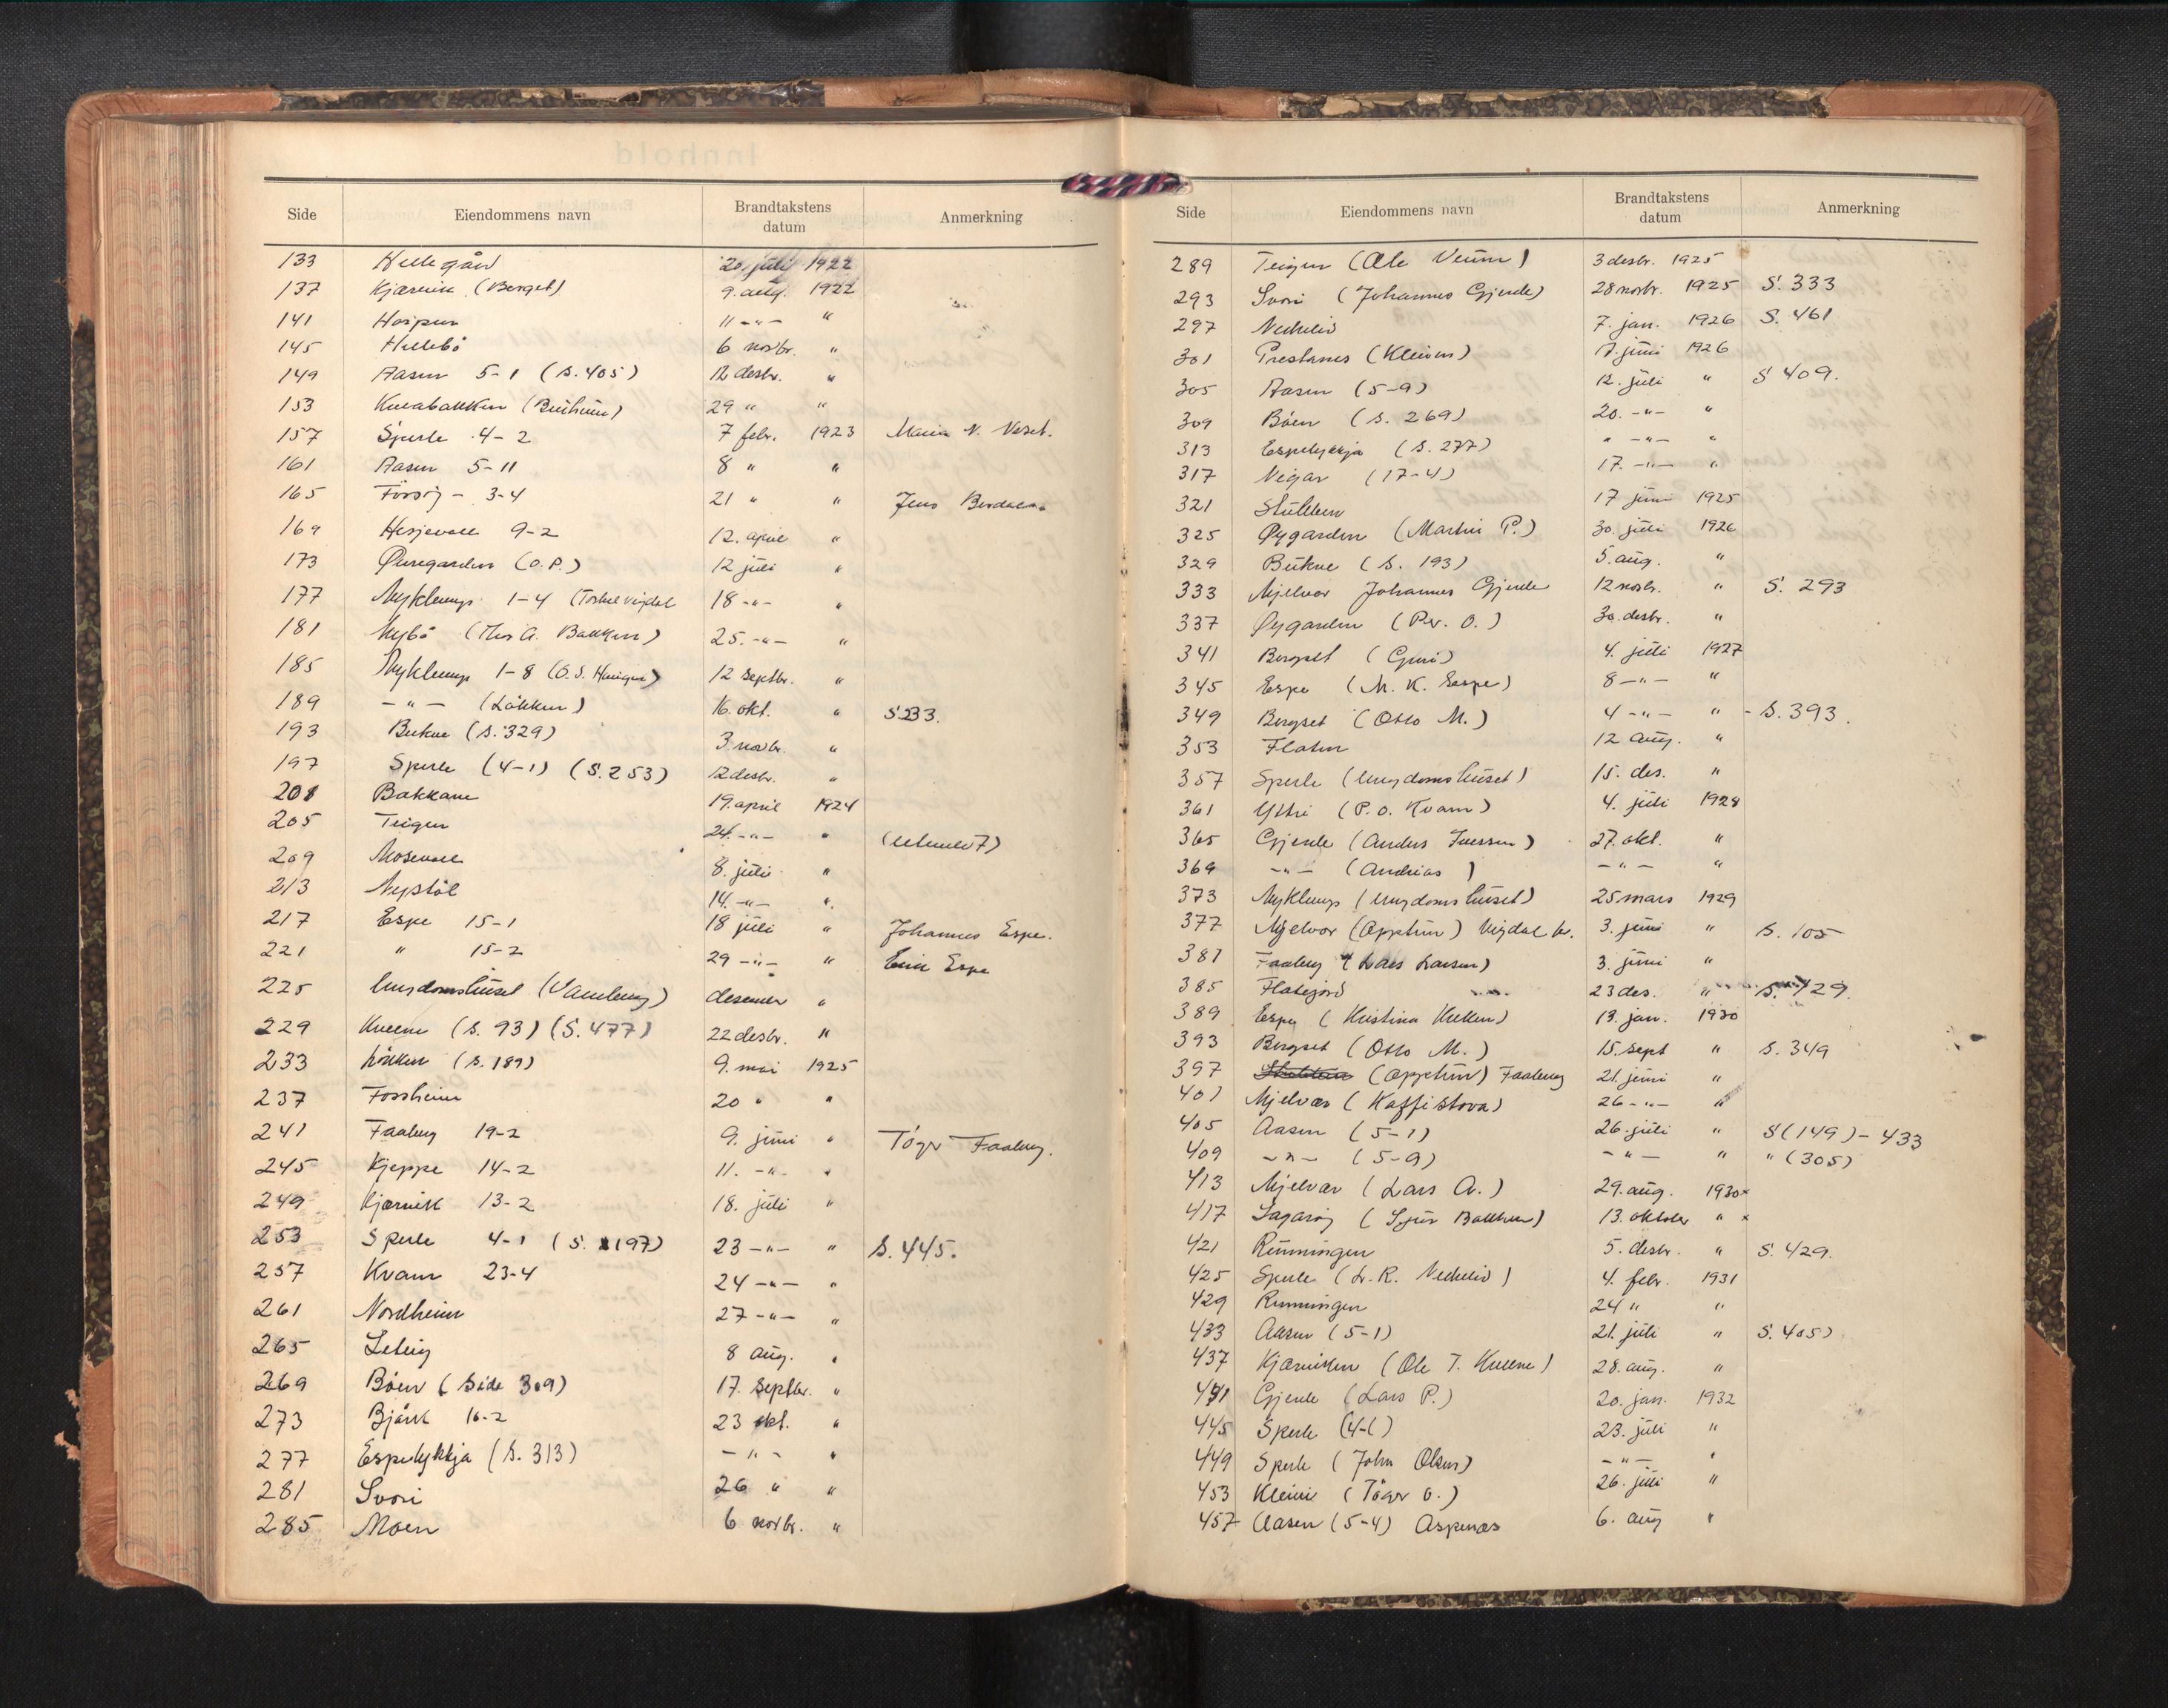 Innhold
Side Eiendommens navn Brandtakstens datum Anmerkning
133 Hellegård 20. juli 1922
137 Kjærvik (Berget) 9. aug. 1922
141 11 -"- "
145 Hellebö 6 novbr. "
149 Aasen 5-1 (S. 405) 12 desbr. "
153 29 " "
157 Sperle 4-2 7 febr. 1923 N.
161 Aasen 5-11 8 " "
165 3-4 21 " " Jens
169 Hesjevoll 9-2 12. april "
173 Øvregarden (O.P.) 12 juli "
177 Myklemyr 1-4 18 -"- "
181 Nybö 25. -"- "
185 Myklemyr 1-8 12 septbr. "
189 -"- (Løkken) 16. okt. " S. 233.
193 Bukve (S. 329) 3. novbr. "
197 Sperle (4-1) (S. 253) 12 desbr. "
201 Bakkane 19. april 1924
205 Teigen 24. -"- "
209 Mosevoll 8. juli "
213 Nystöl 14. -"- "
217 Espe 15-1 18 juli " Johannes Espe.
221 " 15-2 29 -"- " Erik Espe
225 Ungdomshuset 
229 Kveene (S. 93) (S. 477) 22 desbr. "
233 Løkken (S. 189) 9. mai 1925
237 Fossheim 20 " "
241 Faaberg 19-2 9. juni " Töger Faaberg.
245 Kjeppe 14-2 11. -"- "
249 Kjærvik 13-2 18. juli "
253 Sperle 4-1 (S. 197) 23 -"- " S. 445.
257 Kvam 23-4 24 -"- "
261 Nordheim 27 -"- "
265 8 aug. "
269 Böen (Side 309) 17. septbr. "
273 Bjørk 16-2 23 okt. "
277 Espelykkja (S. 313) -"- "
281 Svori 26 " "
285 Moen 6 novbr. "
Side Eiendommens navn Brandtakstens datum Anmerkning
289 Teigen (Ole Veum) 3 desbr. 1925
293 Svori (Johannes Gjerde) 28 novbr. 1925 S. 333
297 7. jan. 1926 S. 461
301 Prestanes (Kleiven) 17. juni 1926
305 Aasen (5-9) 12. juli " S 409.
309 Böen (S. 269) 20. -"- "
313 Espelykkja (S. 277) " -"- "
317 Vigar (17-4) 17. -"- "
321 17 juni 1925
325 Øygarden (Martin P.) 30. juli 1926
329 Bukve (S. 193) 5. aug. "
333 Mjelvor Johannes Gjerde 12 novbr. " S. 293
337 Øygarden (Per. O.) 30. desbr. "
341 Bergset (Guri) 4. juli 1927
345 Espe (M. K. Espe) 8 -"- "
349 Bergset (Otto M.) 4 -"- " - S. 393.
353 Flaten 12 aug. "
357 Sperle (Ungdomshuset) 15. des. "
361 Yttri (P. O. Kvam) 4. juli 1928
365 Gjerde (Anders Iversen) 27. okt. "
369 -"- (Andreas) -"- "
373 Myklemyr (Ungdomshuset) 25 mars 1929
377 Mjelvor (Opptun) Vigdal br. 3. juni " S. 105
381 Faaberg (Lars Larsen) 3. juni "
385 Flategjord 23 des. " S. 429.
389 Espe (Kristina 13. jan. 1930
393 Bergset (Otto M.) 15. sept " S. 349
397 (Opptun) Faaberg 21. juni "
401 Mjelvor (Kaffistova) 26 -"- "
405 Aasen (5-1) 26. juli " S (149) - 433
409 -"- (5-9) -"- " " (305)
413 Mjelvor (Lars A.) 29. aug. 1930 x
417 13. oktober " x
421 Runningen 5. desbr. " S. 429.
425 Sperle 4. febr. 1931
429 Runningen 24 " "
433 Aasen (5-1) 21. juli " S. 405)
437 Kjærviken (Ole T. Kveene) 28. aug. "
441 Gjerde (Lars P.) 20. jan. 1932
445 Sperle (4-1) 23. juli "
449 Sperle (John Olsen) -"- "
453 Kleivi (Töger O.) 26. juli "
457 Aasen (5-4) Aspenæs 6. aug "